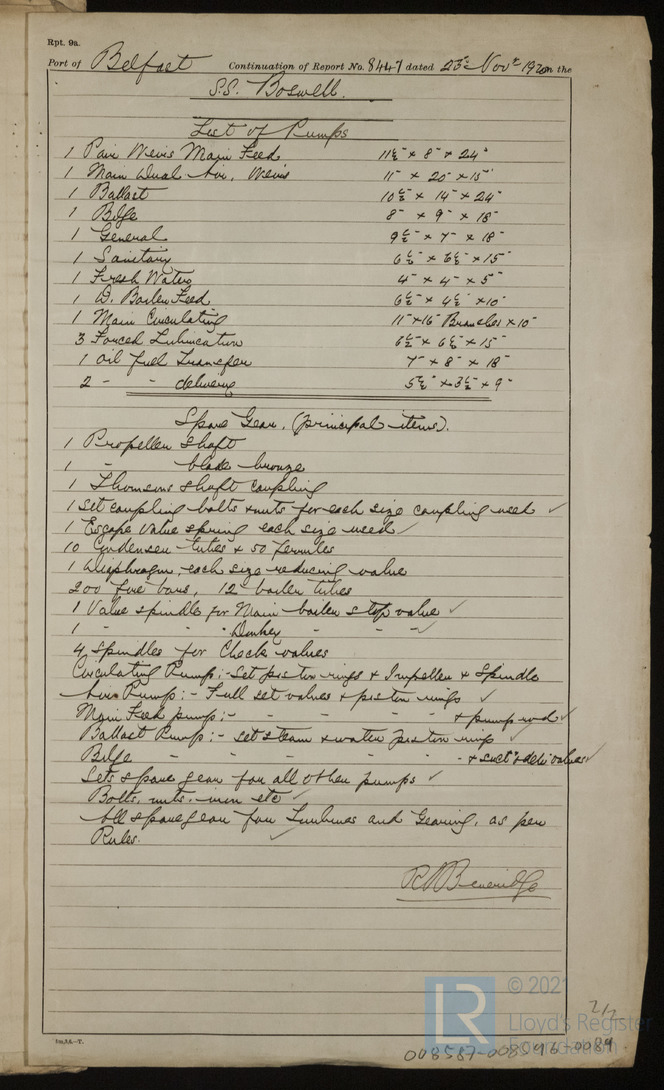 Rpt. 9a.
Port of Belfast Continuation of Report No. 8447 dated 23rd Novr 1920 on the
S.S. Boswell.
List of Pumps
1 Pair Weirs Main Feed 11½" x 8" x 24"
1 Main Dual Air, Weirs 11" x 20" x 15"
1 Ballast 10½" x 14" x 24"
1 Bilge 8" x 9" x 18"
1 General 9½" x 7" x 18"
1 Sanitary 6½" x 6½" x 15"
1 Fresh Water 4" x 4" x 5"
1 D. Boiler Feed 6½" x 4½" x 10"
1 Main Circulating 11" x 16" Branches x 10"
3 Forced Lubrication 6½" x 6½" x 15"
1 Oil Fuel Transfer 7" x 8" x 18"
2 - - delivery 5½" x 3½" x 9"
Spare Gear, (principal items).
1 Propeller Shaft
1 - blade bronze
1 Thomsons shaft coupling
1 Set coupling bolts & nuts for each size coupling used ✓
1 Escape Valve spring each size used ✓
10 Condenser tubes & 50 ferrules
1 Diaphragm, each size reducing valve
200 fire bars, 12 boiler tubes
1 Valve spindle for Main boiler stop valve ✓
1 - - - Donkey - - - ✓
4 Spindles for Check valves
Circulating Pump:- Set piston rings & Impeller & Spindle
Air Pump:- Full set valves & piston rings ✓
Main Feed pump:- - - - - - - & pump rod ✓
Ballast Pump:- set steam & water piston rings ✓
Bilge - - - - - - - & suct & deliv valves ✓
Sets spare gear for all other pumps ✓
Bolts, nuts, iron etc ✓
All spare gear for Turbines and Gearing, as per
Rules. ✓
R Beveridge
© 2021
LR
Lloyd's Register
Foundation
2/2
008587-008596-0089